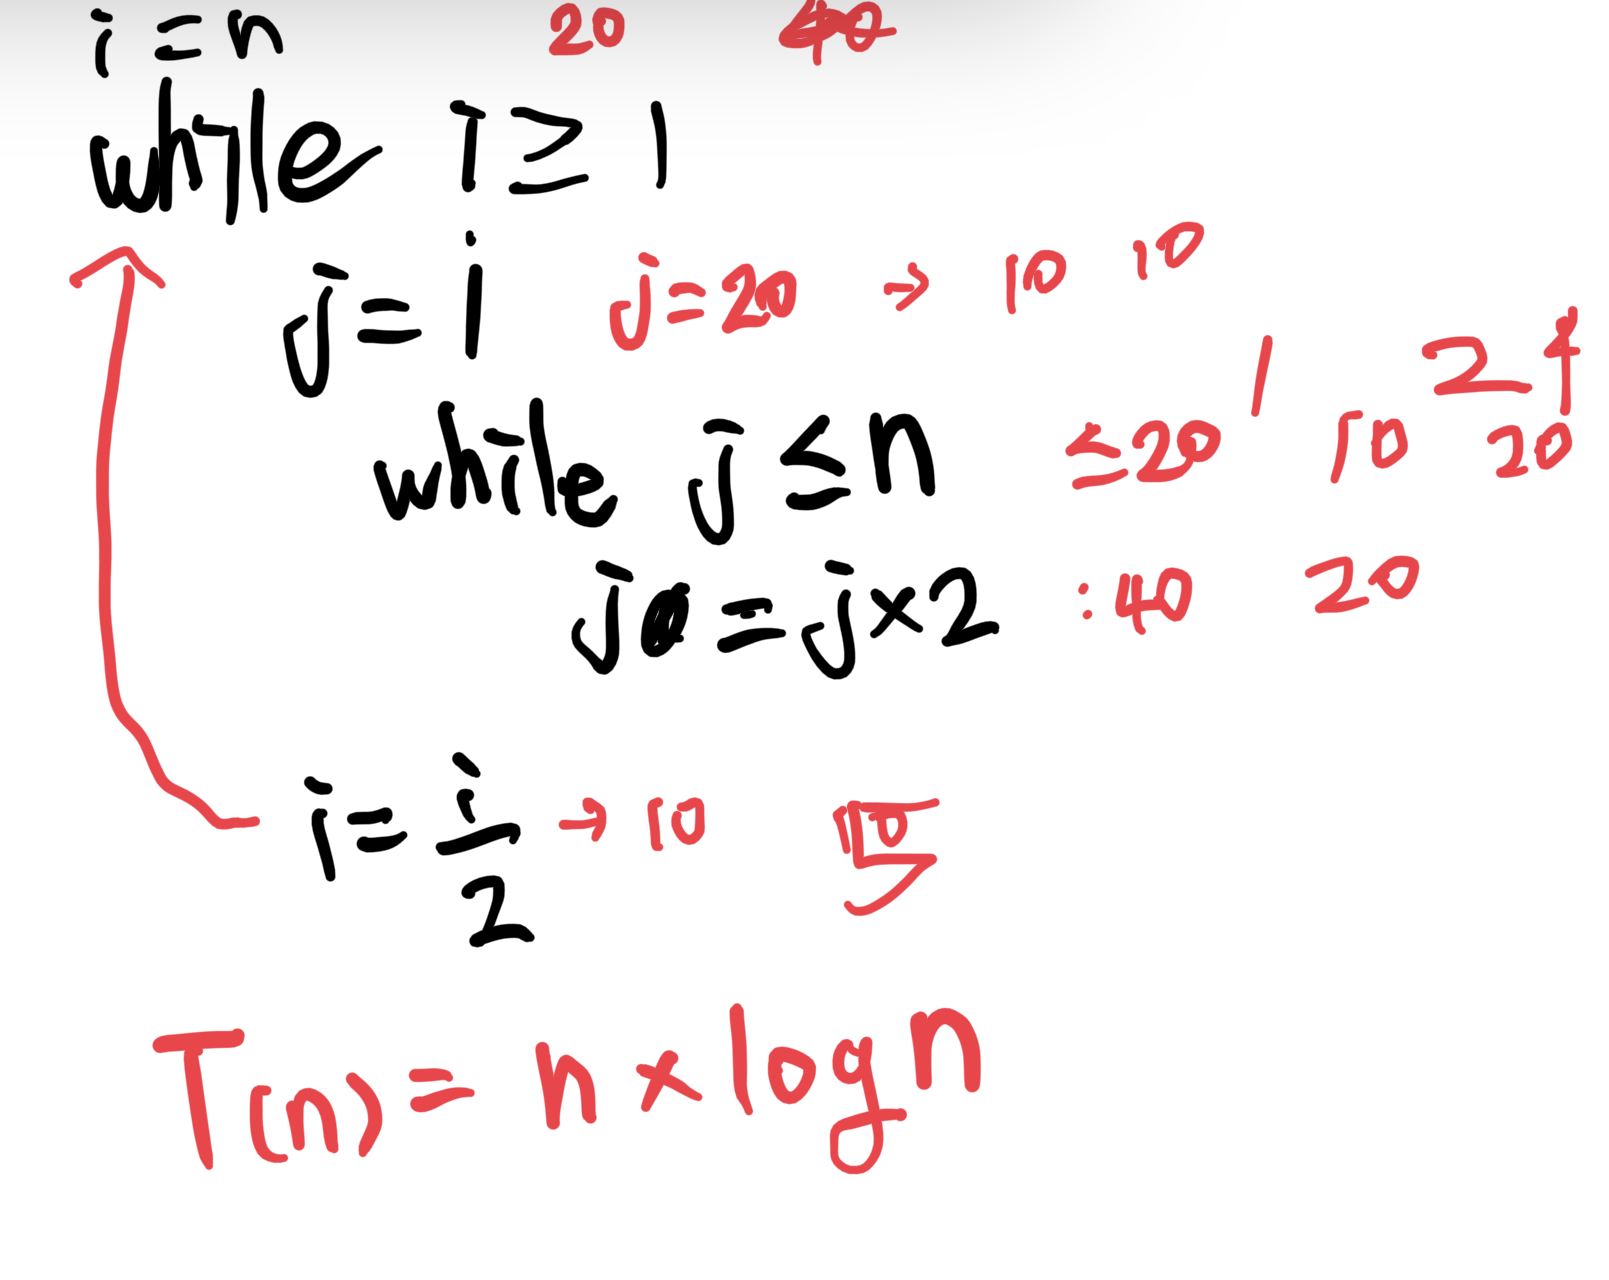 i = n 20 40
while i ≥ 1
j = i j = 20 → 10 10
while j ≤ n ≤ 20 1 10 20 2
j = j × 2 : 40 20
i = i/2 → 10 10 5
T(n) = n × log n